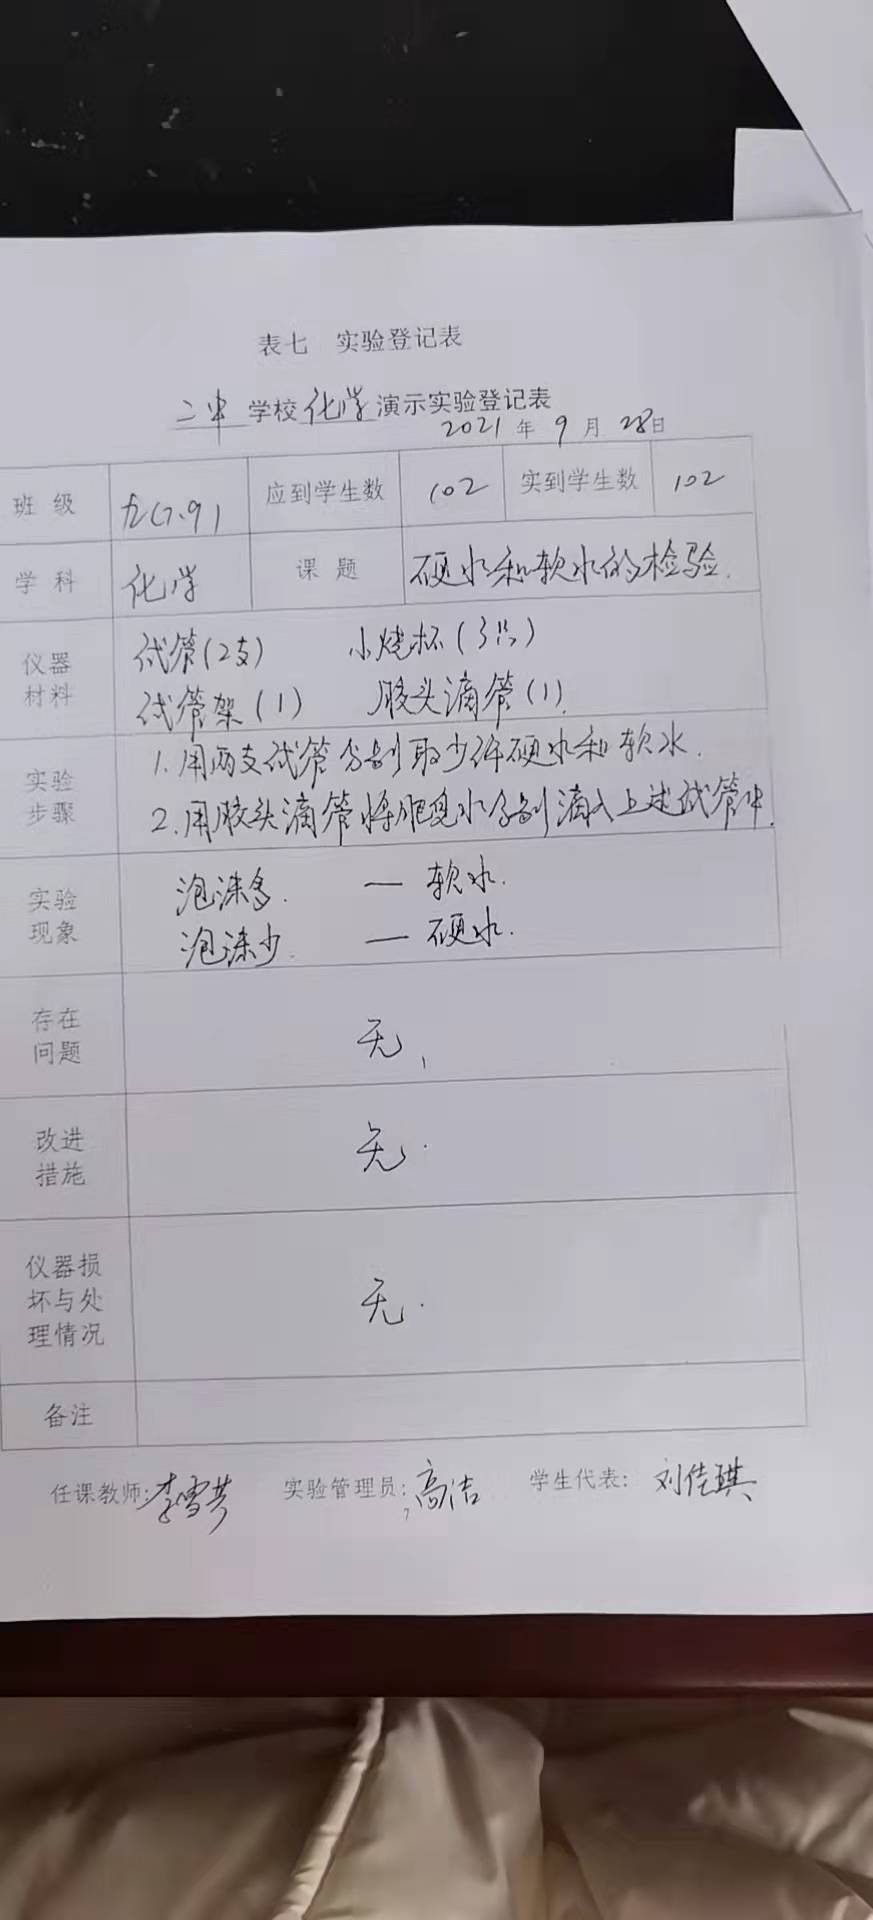 表七 实验登记表
二中 学校 化学 演示实验登记表
2021 年 9 月 28 日
班 级 九(7.9) 应到学生数 102 实到学生数 102
学 科 化学 课 题 硬水和软水的检验.
仪器
材料
试管(2支) 小烧杯(3只)
试管架(1) 胶头滴管(1).
实验
步骤
1.用两支试管分别取少许硬水和软水.
2.用胶头滴管将肥皂水分别滴入上述试管中.
实验
现象
泡沫多. — 软水.
泡沫少. — 硬水.
存在
问题
无,
改进
措施
无.
仪器损
坏与处
理情况
无.
备注
任课教师: 李雪芳 实验管理员: 高洁 学生代表: 刘佳琪